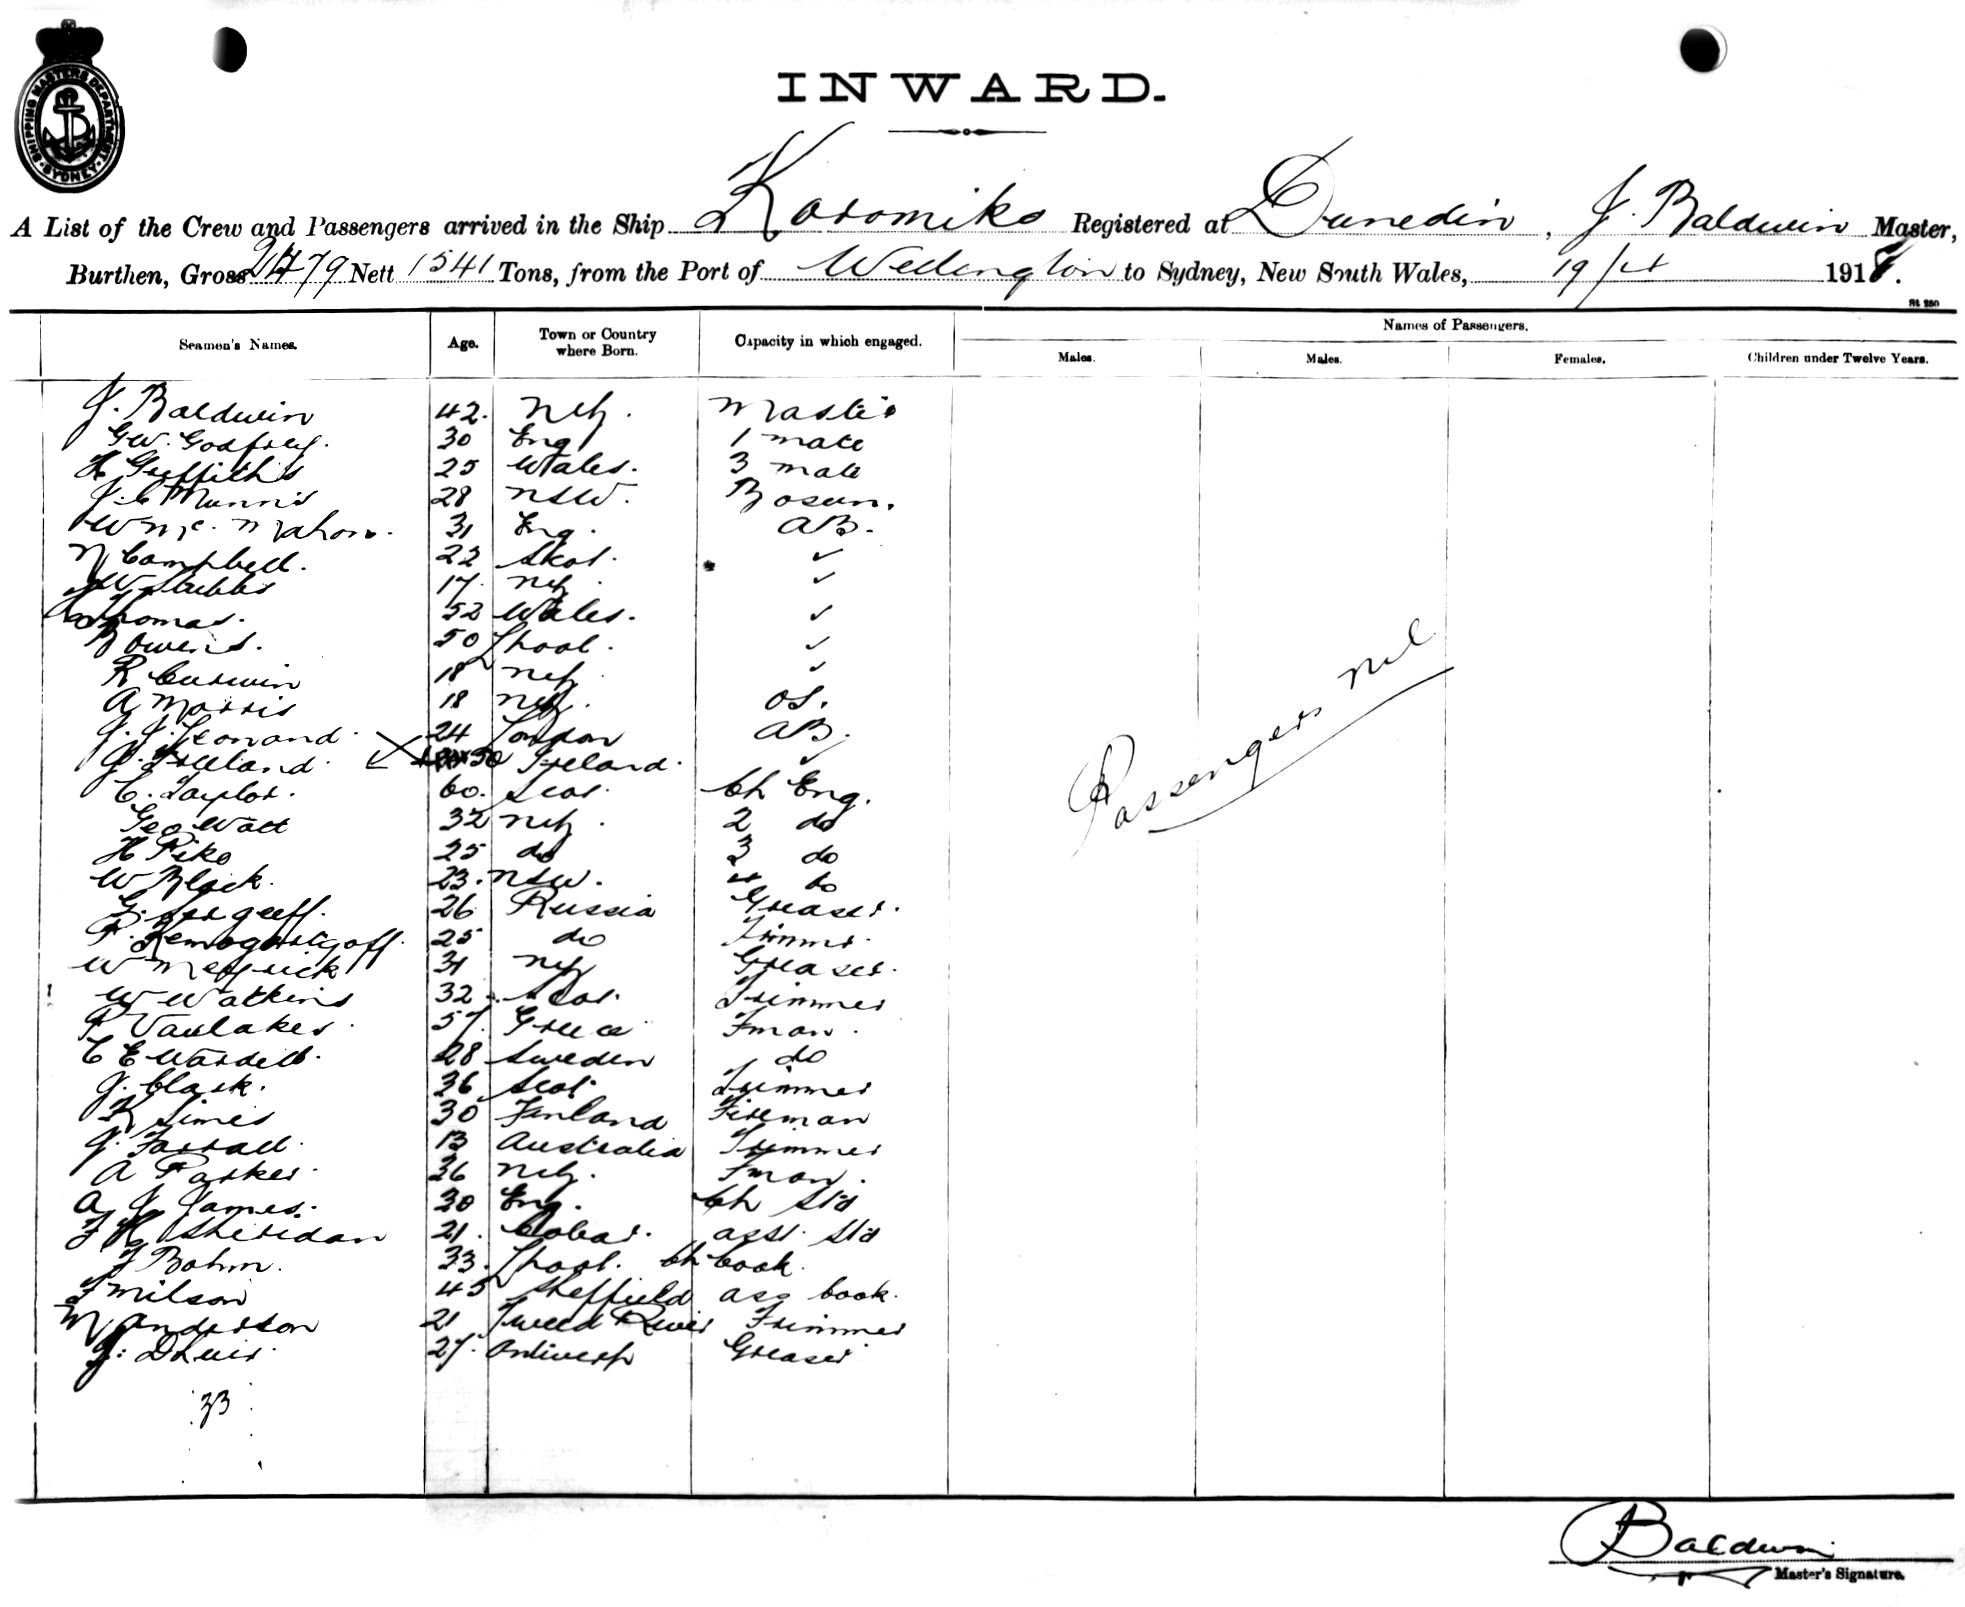 SHIPPING MASTERS DEPARTMENT SYDNEY
INWARD.
A List of the Crew and Passengers arrived in the Ship Koromiko Registered at Dunedin, J. Baldwin Master,
Burthen, Gross 2479 Nett 1541 Tons, from the Port of Wellington to Sydney, New South Wales, 19/4 1918.
Seamen's Names. Age. Town or Country where Born. Capacity in which engaged. Names of Passengers.
Males. Males. Females. Children under Twelve Years.
J. Baldwin 42. NZ. Master
G W. Godfrey. 30 Eng 1 mate
H Griffiths 25 Wales. 3 mate
J. C Munns 28 NSW. Bosun.
W Mc. Mahon. 31 Eng. AB.
N Campbell. 22 Skot. ✓
W Stubbs 17. NZ ✓
Thomas. 52 Wales. ✓
R Owens. 50 Lpool. ✓
R Curwin 18 NZ ✓
A Morris 18 NZ. OS.
J. J. Leonard. 24 London AB.
J. Ireland. 30 Ireland. ✓
C. Taylor. 60. Scot. Ch Eng.
Geo Watt 32 NZ. 2 do
H Pike 25 do 3 do
W Black. 23. NSW. 4 do
26 Russia Greaser.
P. 25 do Trimmr.
W Meyrick 31 NZ Greaser.
W Watkins 32 Scot. Trimmer
P Vaulakes. 57. Greece Fman.
C E Wardell. 28 Sweden do
J. Clark. 36 Scot. Trimmer
K Simes 30 Finland Fireman
J. Farrall. Australia Trimmer
A Parker. 36 NZ. Fman.
A J James. 30 Eng. Ch Std
F H Sheridan 21. Cobar. asst. Std
F Bohm. 33. Lpool. Ch Cook.
F Milson 45 Sheffield ass Cook.
N Anderson 21 Tweed River Trimmer
J. 27. Antwerp Greaser
33
Passengers Nil
Baldwin
Master's Signature.